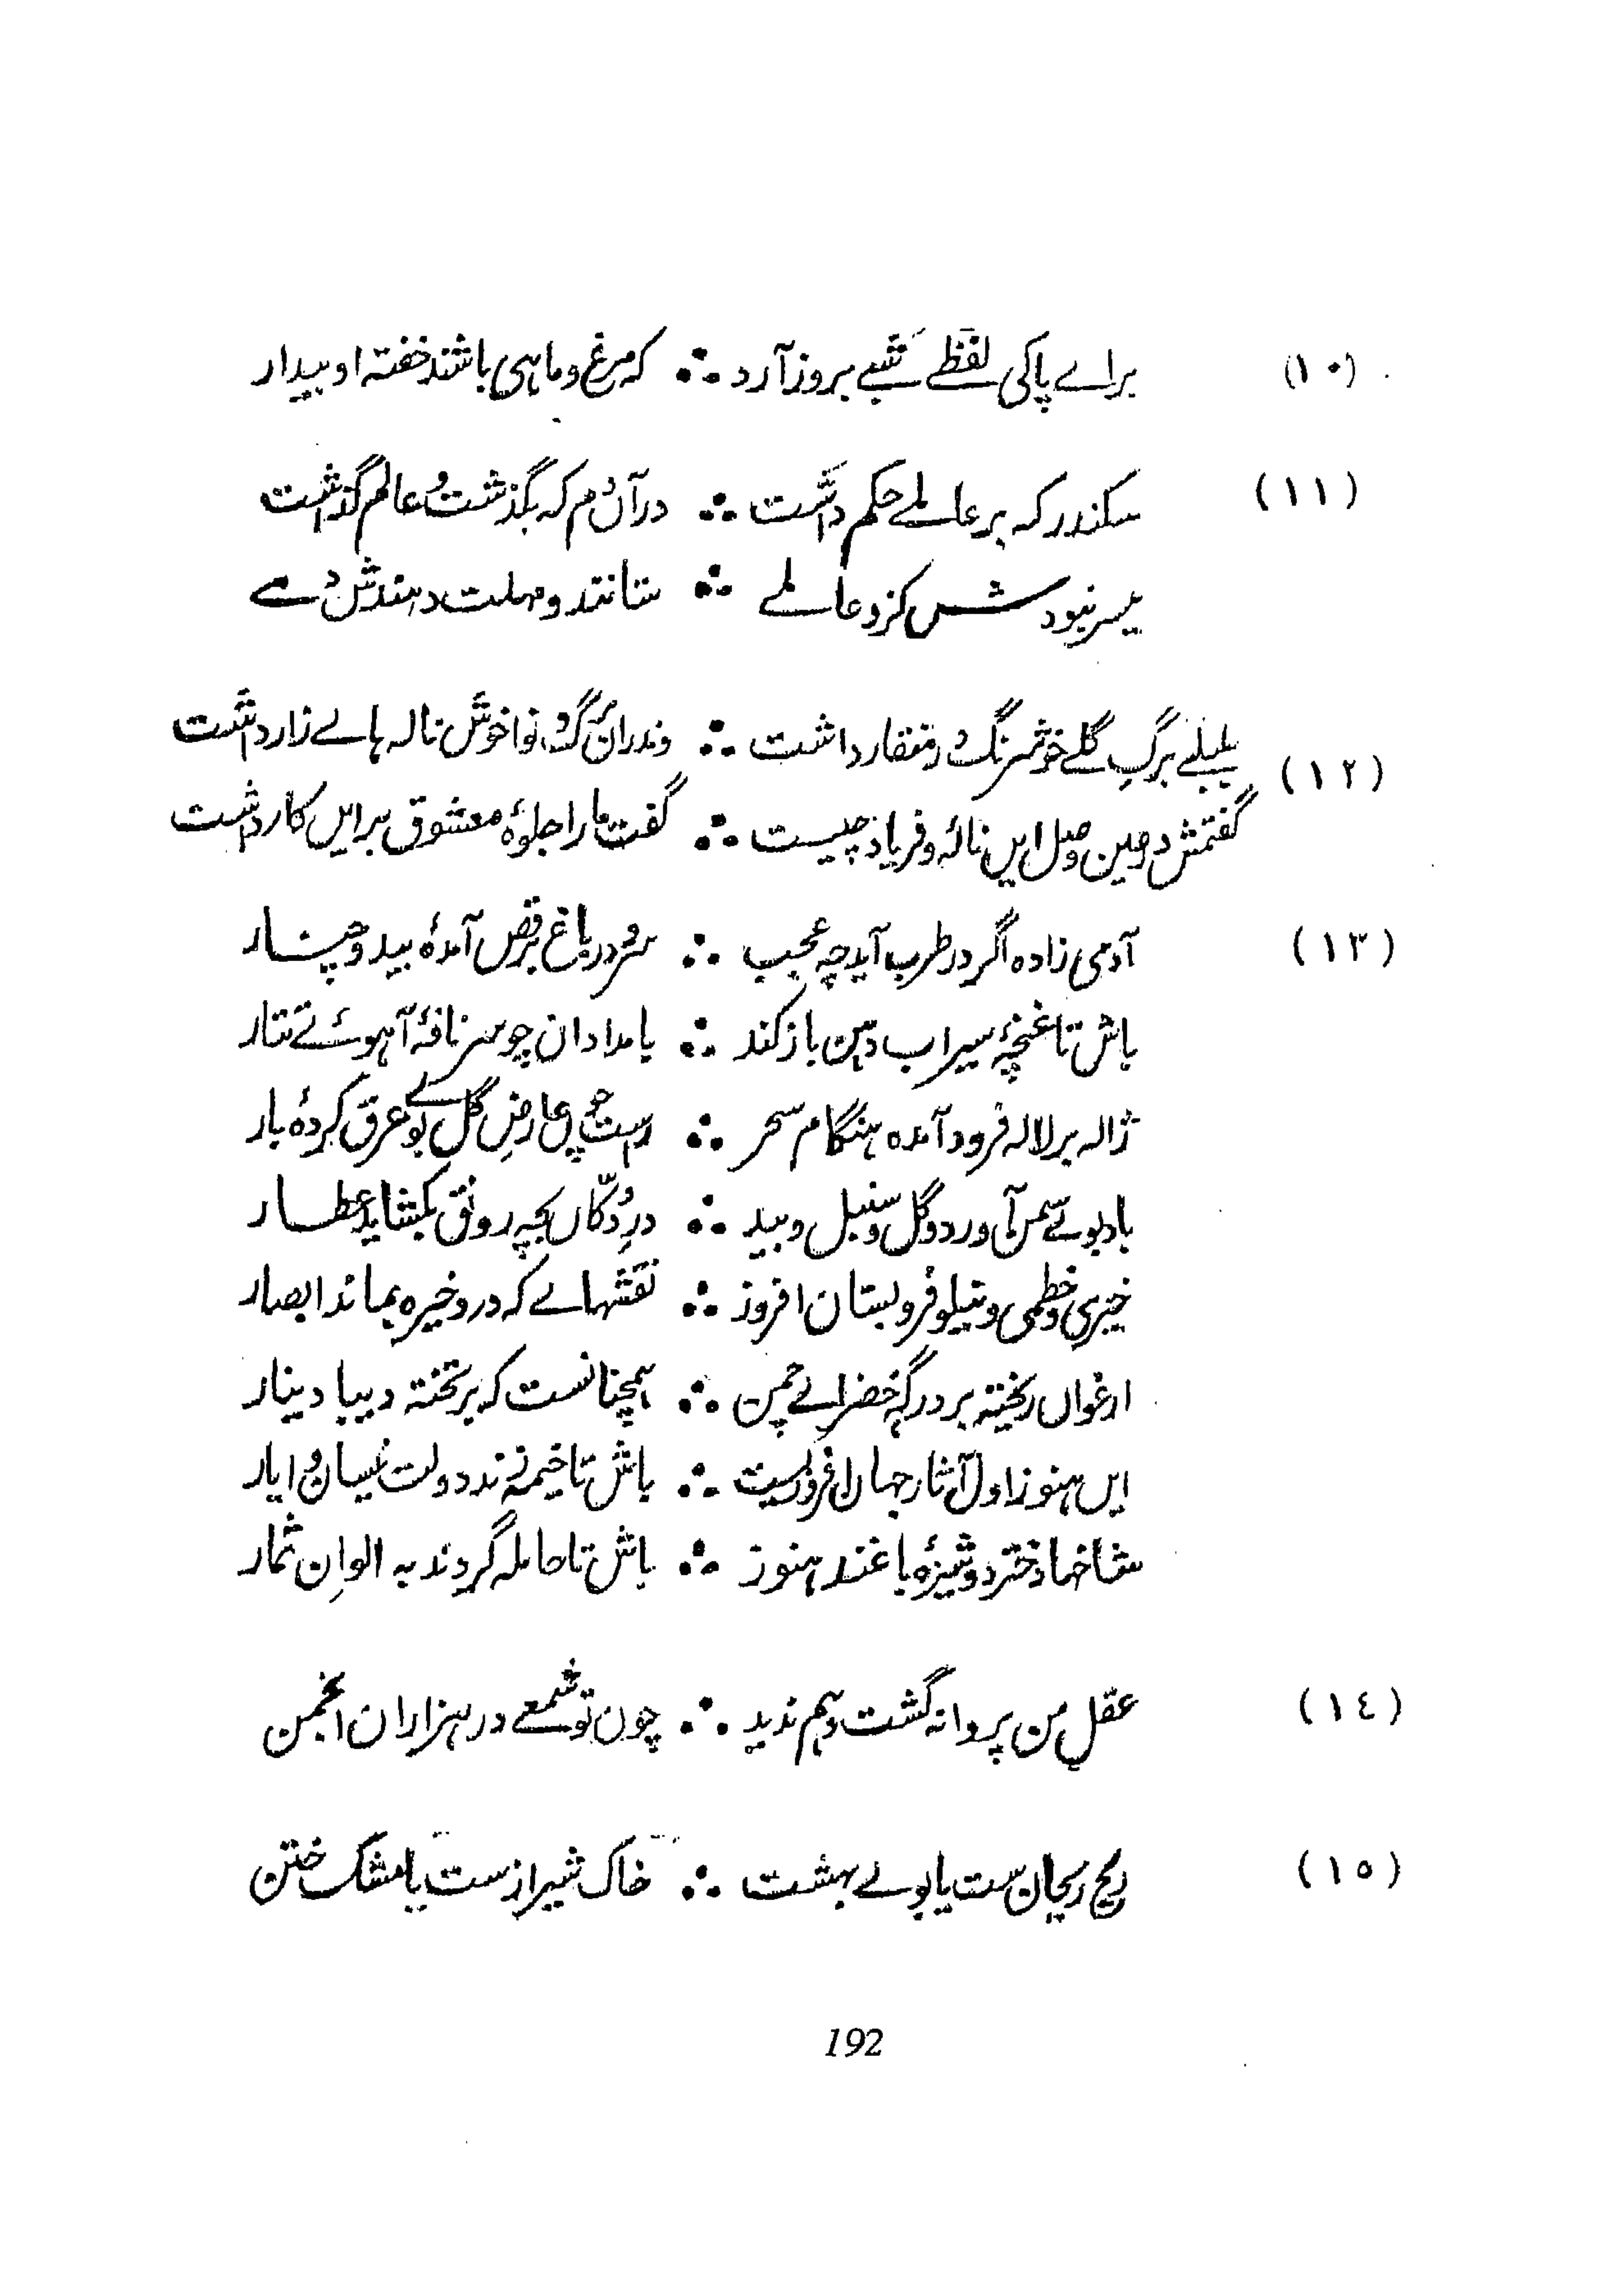 (۱۰) براے پاکی لفظے شبے بروز آرد ∴ کہ مرغ و ماہی باشند خفتہ او بیدار
(۱۱) سکندر کہ بر عالمے حکم داشت ∴ در آں دم کہ بگذشت و عالم گذاشت
میسر نبودش کزو عالمے ∴ ستانند و مہلت دہندش دمے
(۱۲) بلبلے برگِ گلے خوشرنگ در منقار داشت ∴ وندراں برگ و نوا خوش نالہ ہاے زار داشت
گفتمش در عین وصل ایں نالۂ و فریاد چیست ∴ گفت مارا جلوۂ معشوق بر ایں کار داشت
(۱۳) آدمی زادہ اگر در طرب آید چہ عجب ∴ سرو در باغ برقص آمدۂ بید و چنار
باش تا غنچۂ سیراب دہن باز کند ∴ بامدادان چو سر نافۂ آہوئے تتار
ژالہ بر لالہ فرود آمدہ ہنگام سحر ∴ راست چو عارضِ گل بوے عرق کردۂ بار
باد بوئے سمن آورد و گل و سنبل و بید ∴ درِ دُکّاں بچہ رونق بکشاید عطار
خیری و خطمی و نیلوفر و بستان افروز ∴ نقشہاے کہ درو خیرہ بماند ابصار
ارغواں ریختہ بر درگہ خضراے چمن ∴ ہمچنانست کہ بر تختہ دیبا دینار
ایں ہنوز اول آثار جہاں افروزیست ∴ باش تا خیمہ زند دولت نیسان و ایار
شاخہا دختر دوشیزۂ باغند ہنوز ∴ باش تا حاملہ گردند بہ الوانِ ثمار
(۱٤) عقلِ من پروانہ گشت وہم ندید ∴ چون تو شمعے در ہزاران انجمن
(۱۵) ریح ریحان ست یا بوے بہشت ∴ خاک شیراز ست یا مشک ختن
192